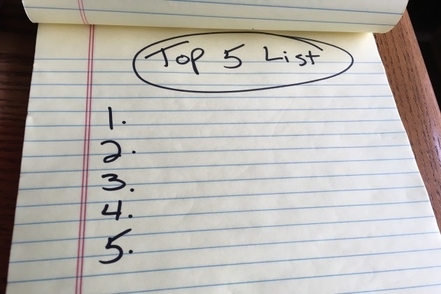 Top 5 List
1.
2.
3.
4.
5.